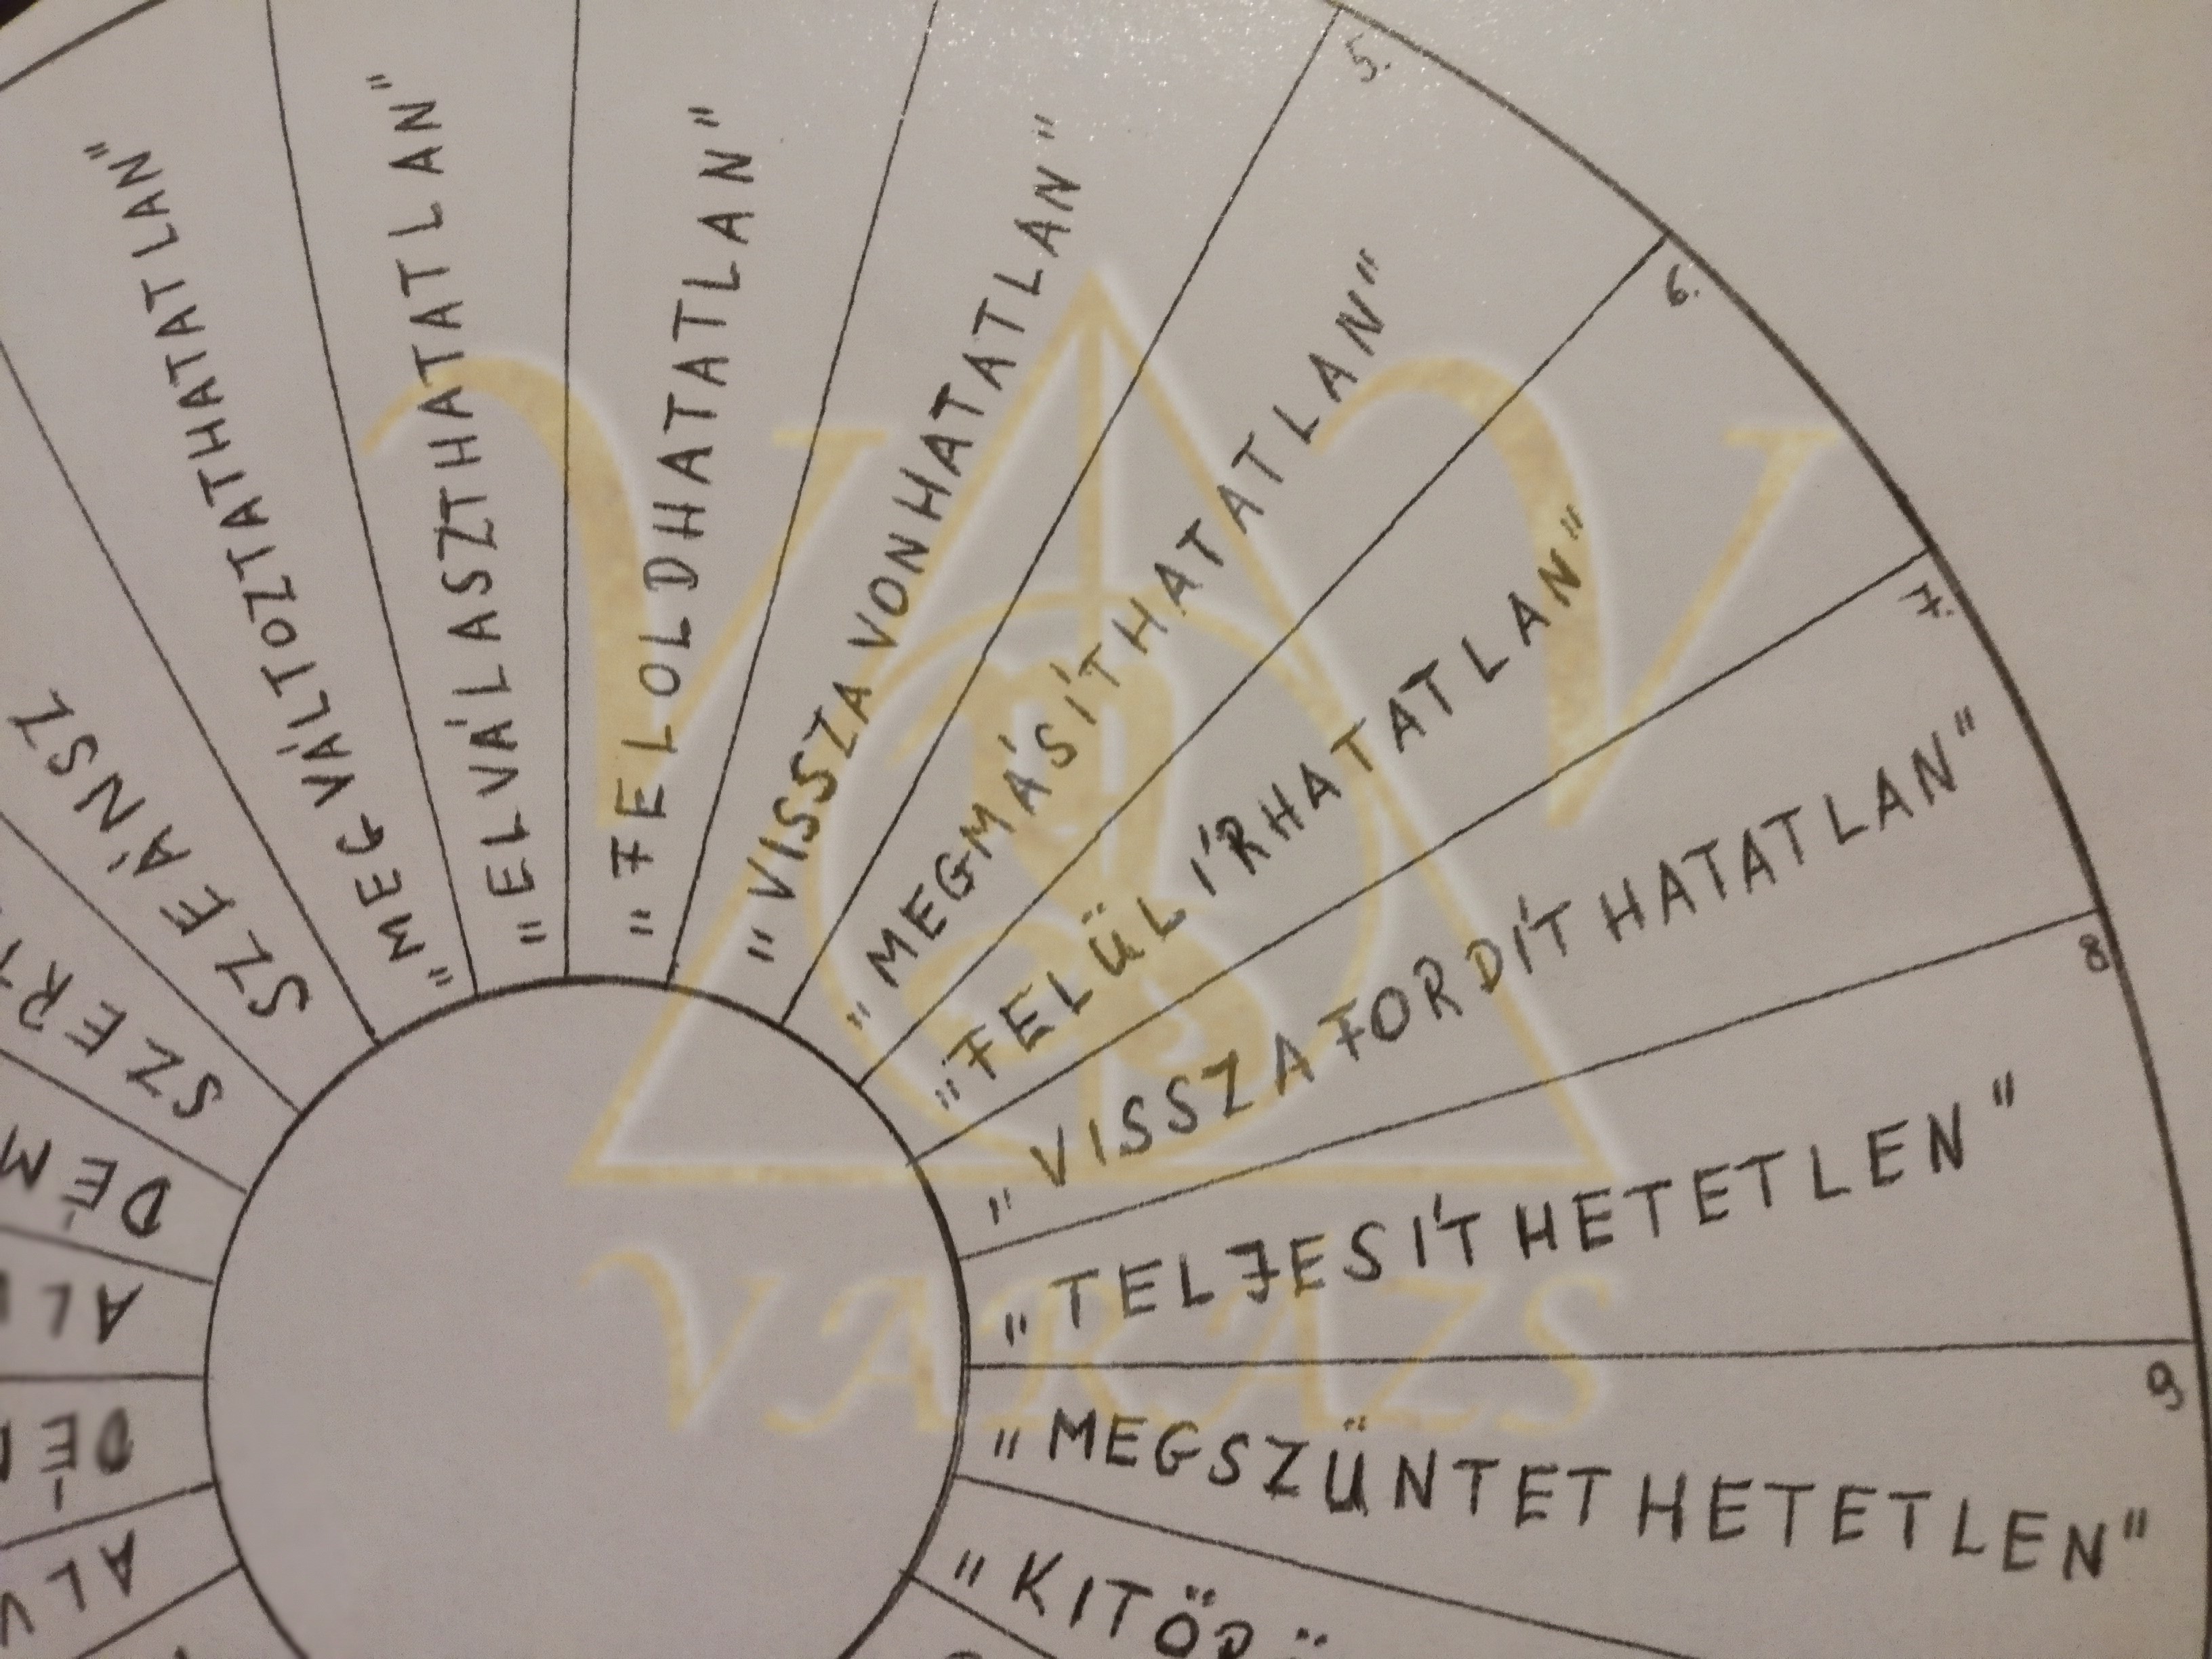 SZEÁNSZ
"MEGVÁLTOZTATHATATLAN"
"ELVÁLASZTHATATLAN"
"FELOLDHATATLAN"
"VISSZAVONHATATLAN"
5.
"MEGMÁSÍTHATATLAN"
6.
"FELÜLÍRHATATLAN"
7.
"VISSZAFORDÍTHATATLAN"
8
"TELJESÍTHETETLEN"
9
"MEGSZÜNTETHETETLEN"
V V
VARÁZS